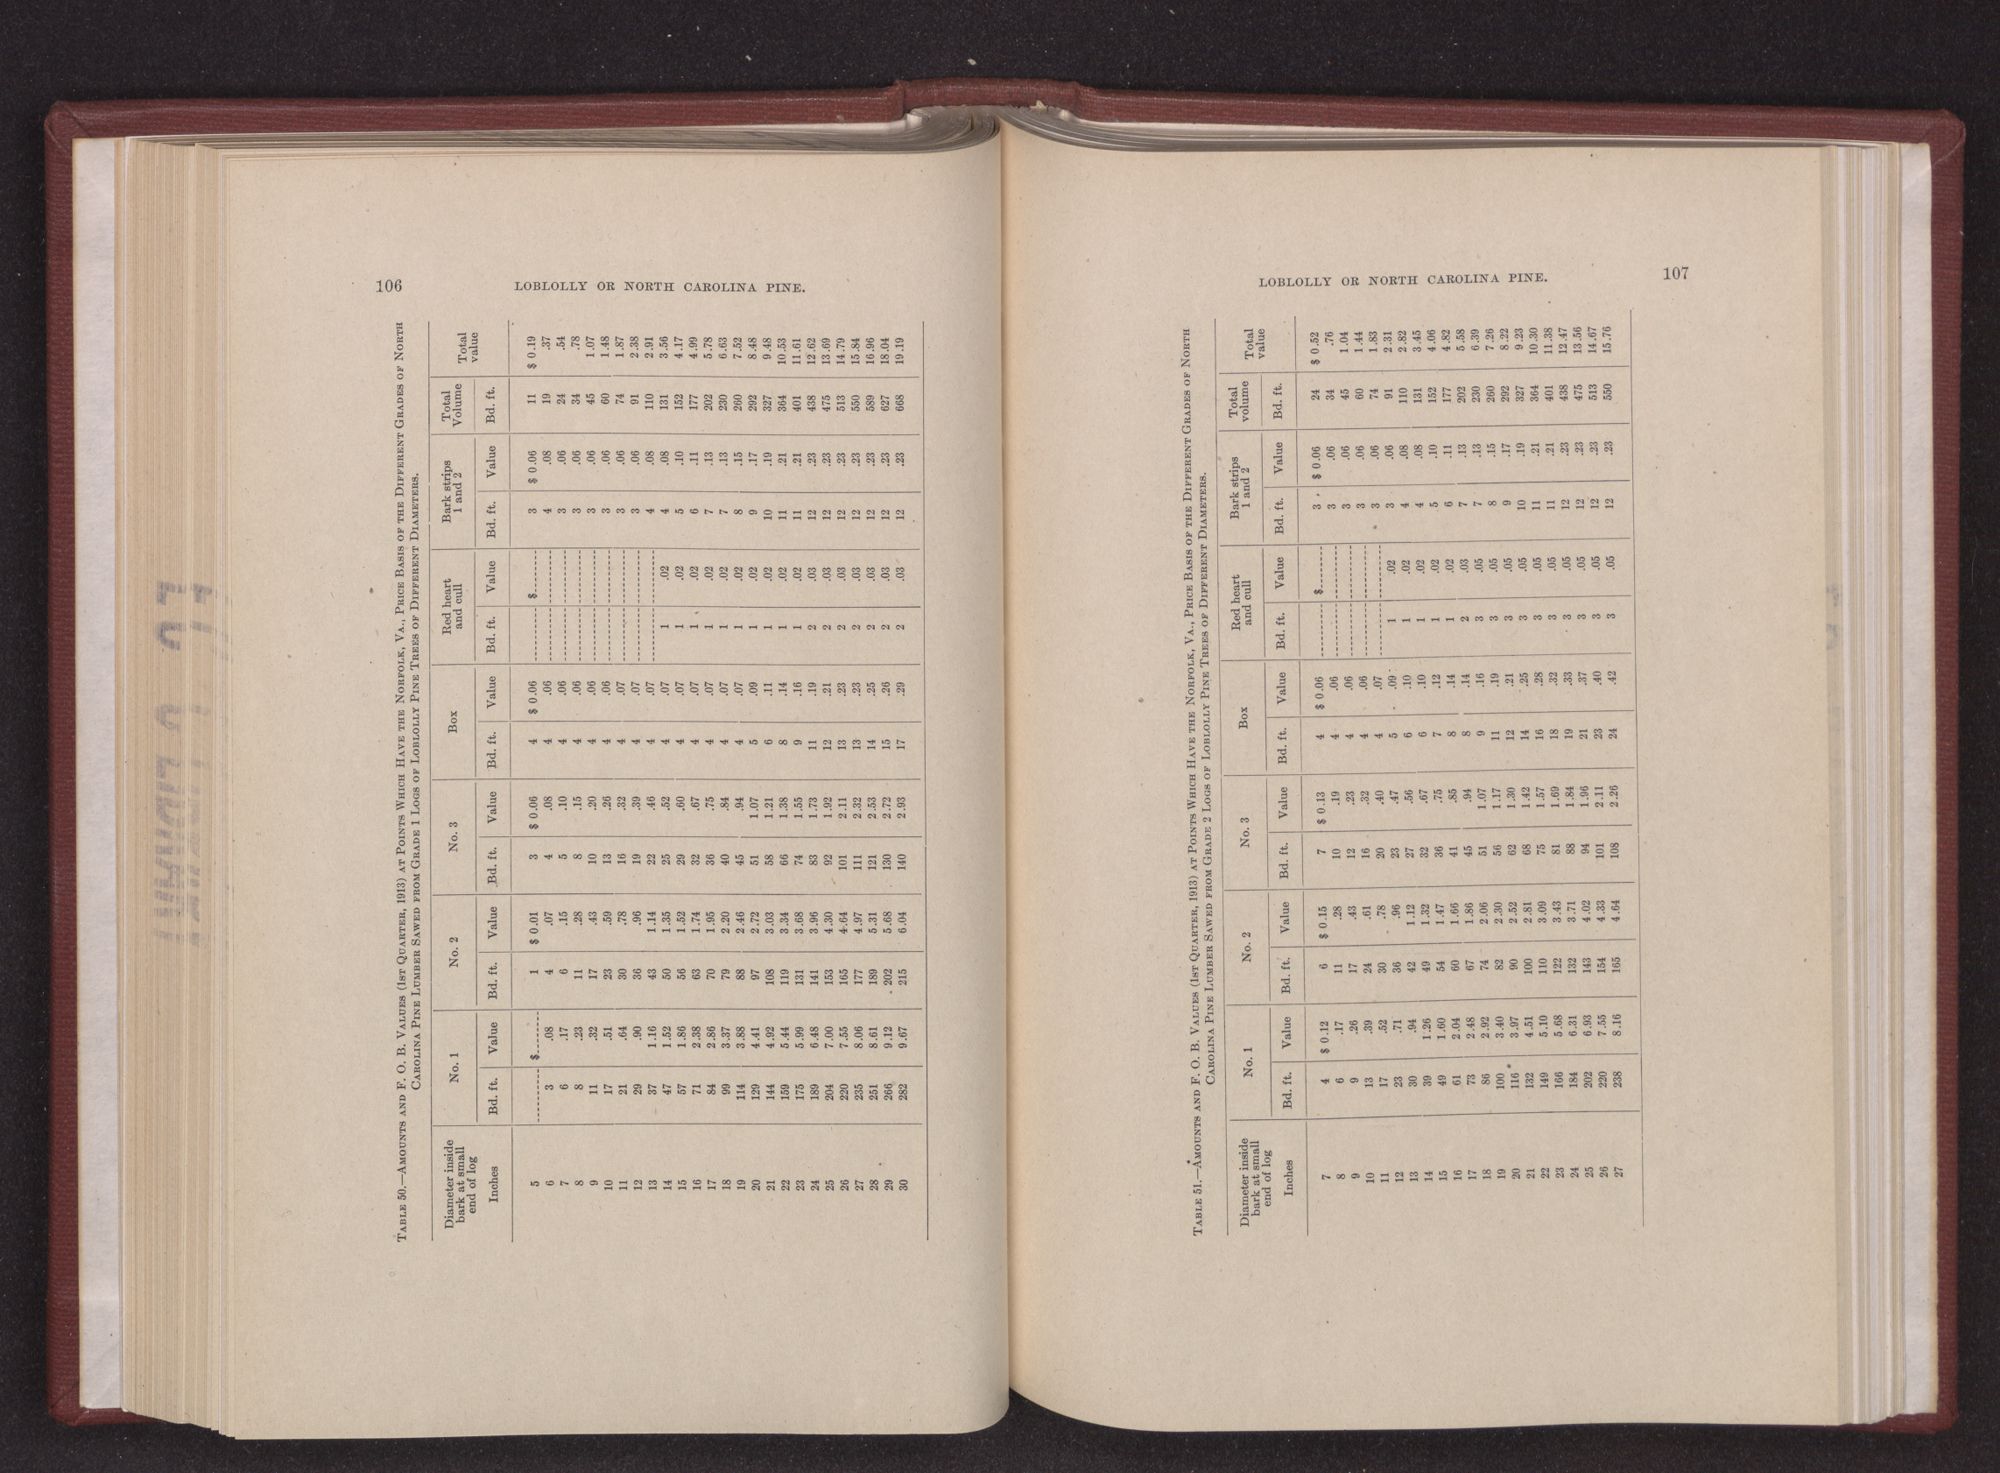 106
LOBLOLLY OR NORTH CAROLINA PINE.
TABLE 50.—AMOUNTS AND F. O. B. VALUES (1ST QUARTER, 1913) AT POINTS WHICH HAVE THE NORFOLK, VA., PRICE BASIS OF THE DIFFERENT GRADES OF NORTH
CAROLINA PINE LUMBER SAWED FROM GRADE 1 LOGS OF LOBLOLLY PINE TREES OF DIFFERENT DIAMETERS.
Diameter inside bark at small end of log No. 1 No. 2 No. 3 Box Red heart and cull Bark strips 1 and 2 Total Volume Total value
Inches Bd. ft. Value Bd. ft. Value Bd. ft. Value Bd. ft. Value Bd. ft. Value Bd. ft. Value Bd. ft.
5 -------- $------ 1 $0.01 3 $0.06 4 $0.06 -------- $------ 3 $0.06 11 $0.19
6 3 .08 4 .07 4 .08 4 .06 -------- -------- 4 .08 19 .37
7 6 .17 6 .15 5 .10 4 .06 -------- -------- 3 .06 24 .54
8 8 .23 11 .28 8 .15 4 .06 -------- -------- 3 .06 34 .78
9 11 .32 17 .43 10 .20 4 .06 -------- -------- 3 .06 45 1.07
10 17 .51 23 .59 13 .26 4 .06 -------- -------- 3 .06 60 1.48
11 21 .64 30 .78 16 .32 4 .07 -------- -------- 3 .06 74 1.87
12 29 .90 36 .96 19 .39 4 .07 -------- -------- 3 .06 91 2.38
13 37 1.16 43 1.14 22 .46 4 .07 -------- -------- 4 .08 110 2.91
14 47 1.52 50 1.35 25 .52 4 .07 1 .02 4 .08 131 3.56
15 57 1.86 56 1.52 29 .60 4 .07 1 .02 5 .10 152 4.17
16 71 2.38 63 1.74 32 .67 4 .07 1 .02 6 .11 177 4.99
17 84 2.86 70 1.95 36 .75 4 .07 1 .02 7 .13 202 5.78
18 99 3.37 79 2.20 40 .84 4 .07 1 .02 7 .13 230 6.63
19 114 3.88 88 2.46 45 .94 4 .07 1 .02 8 .15 260 7.52
20 129 4.41 97 2.72 51 1.07 5 .09 1 .02 9 .17 292 8.48
21 144 4.92 108 3.03 58 1.21 6 .11 1 .02 10 .19 327 9.48
22 159 5.44 119 3.34 66 1.38 8 .14 1 .02 11 .21 364 10.53
23 175 5.99 131 3.68 74 1.55 9 .16 1 .02 11 .21 401 11.61
24 189 6.48 141 3.96 83 1.73 11 .19 2 .03 12 .23 438 12.62
25 204 7.00 153 4.30 92 1.92 12 .21 2 .03 12 .23 475 13.69
26 220 7.55 165 4.64 101 2.11 13 .23 2 .03 12 .23 513 14.79
27 235 8.06 177 4.97 111 2.32 13 .23 2 .03 12 .23 550 15.84
28 251 8.61 189 5.31 121 2.53 14 .25 2 .03 12 .23 589 16.96
29 266 9.12 202 5.68 130 2.72 15 .26 2 .03 12 .23 627 18.04
30 282 9.67 215 6.04 140 2.93 17 .29 2 .03 12 .23 668 19.19
LOBLOLLY OR NORTH CAROLINA PINE.
107
TABLE 51.—AMOUNTS AND F. O. B. VALUES (1ST QUARTER, 1913) AT POINTS WHICH HAVE THE NORFOLK, VA., PRICE BASIS OF THE DIFFERENT GRADES OF NORTH
CAROLINA PINE LUMBER SAWED FROM GRADE 2 LOGS OF LOBLOLLY PINE TREES OF DIFFERENT DIAMETERS.
Diameter inside bark at small end of log No. 1 No. 2 No. 3 Box Red heart and cull Bark strips 1 and 2 Total volume Total value
Inches Bd. ft. Value Bd. ft. Value Bd. ft. Value Bd. ft. Value Bd. ft. Value Bd. ft. Value Bd. ft.
7 4 $0.12 6 $0.15 7 $0.13 4 $0.06 -------- $------ 3 $0.06 24 $0.52
8 6 .17 11 .28 10 .19 4 .06 -------- -------- 3 .06 34 .76
9 9 .26 17 .43 12 .23 4 .06 -------- -------- 3 .06 45 1.04
10 13 .39 24 .61 16 .32 4 .06 -------- -------- 3 .06 60 1.44
11 17 .52 30 .78 20 .40 4 .07 -------- -------- 3 .06 74 1.83
12 23 .71 36 .96 23 .47 5 .09 1 .02 3 .06 91 2.31
13 30 .94 42 1.12 27 .56 6 .10 1 .02 4 .08 110 2.82
14 39 1.26 49 1.32 32 .67 6 .10 1 .02 4 .08 131 3.45
15 49 1.60 54 1.47 36 .75 7 .12 1 .02 5 .10 152 4.06
16 61 2.04 60 1.66 41 .85 8 .14 1 .02 6 .11 177 4.82
17 73 2.48 67 1.86 45 .94 8 .14 2 .03 7 .13 202 5.58
18 86 2.92 74 2.06 51 1.07 9 .16 3 .05 7 .13 230 6.39
19 100 3.40 82 2.30 56 1.17 11 .19 3 .05 8 .15 260 7.26
20 116 3.97 90 2.52 62 1.30 12 .21 3 .05 9 .17 292 8.22
21 132 4.51 100 2.81 68 1.42 14 .25 3 .05 10 .19 327 9.23
22 149 5.10 110 3.09 75 1.57 16 .28 3 .05 11 .21 364 10.30
23 166 5.68 122 3.43 81 1.69 18 .32 3 .05 11 .21 401 11.38
24 184 6.31 132 3.71 88 1.84 19 .33 3 .05 12 .23 438 12.47
25 202 6.93 143 4.02 94 1.96 21 .37 3 .05 12 .23 475 13.56
26 220 7.55 154 4.33 101 2.11 23 .40 3 .05 12 .23 513 14.67
27 238 8.16 165 4.64 108 2.26 24 .42 3 .05 12 .23 550 15.76